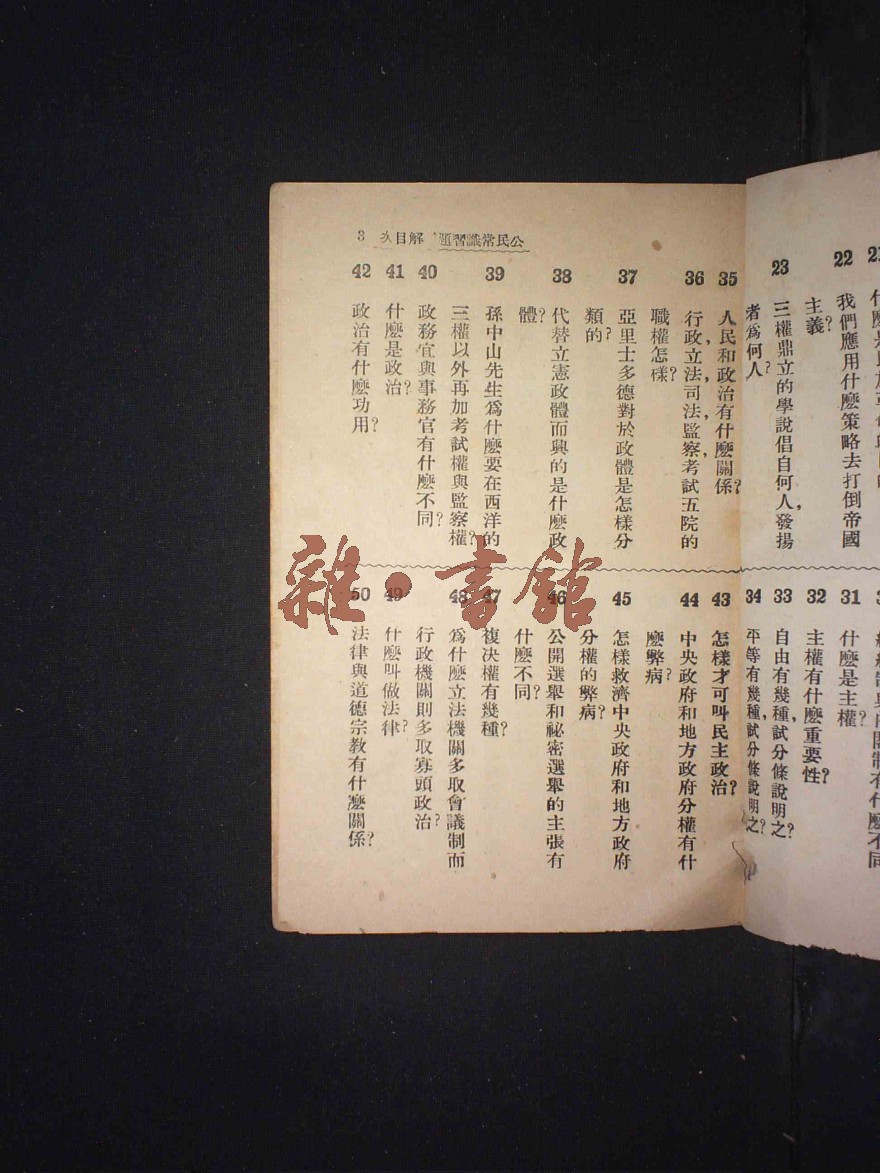 公民常識習題解目 3
22 我們應用什麼策略去打倒帝國
主義?
23 三權鼎立的學說倡自何人,發揚
者爲何人?
31 什麼是主權?
32 主權有什麼重要性?
33 自由有幾種,試分條說明之?
34 平等有幾種,試分條說明之?
35 人民和政治有什麼關係?
36 行政,立法,司法,監察,考試五院的
職權怎樣?
37 亞里士多德對於政體是怎樣分
類的?
38 代替立憲政體而興的是什麼政
體?
39 孫中山先生爲什麼要在西洋的
三權以外再加考試權與監察權?
40 政務官與事務官有什麼不同?
41 什麼是政治?
42 政治有什麼功用?
43 怎樣才可叫民主政治?
44 中央政府和地方政府分權有什
麼弊病?
45 怎樣救濟中央政府和地方政府
分權的弊病?
46 公開選舉和祕密選舉的主張有
什麼不同?
47 複决權有幾種?
48 爲什麼立法機關多取會議制而
行政機關則多取寡頭政治?
49 什麼叫做法律?
50 法律與道德宗教有什麼關係?
雜·書館